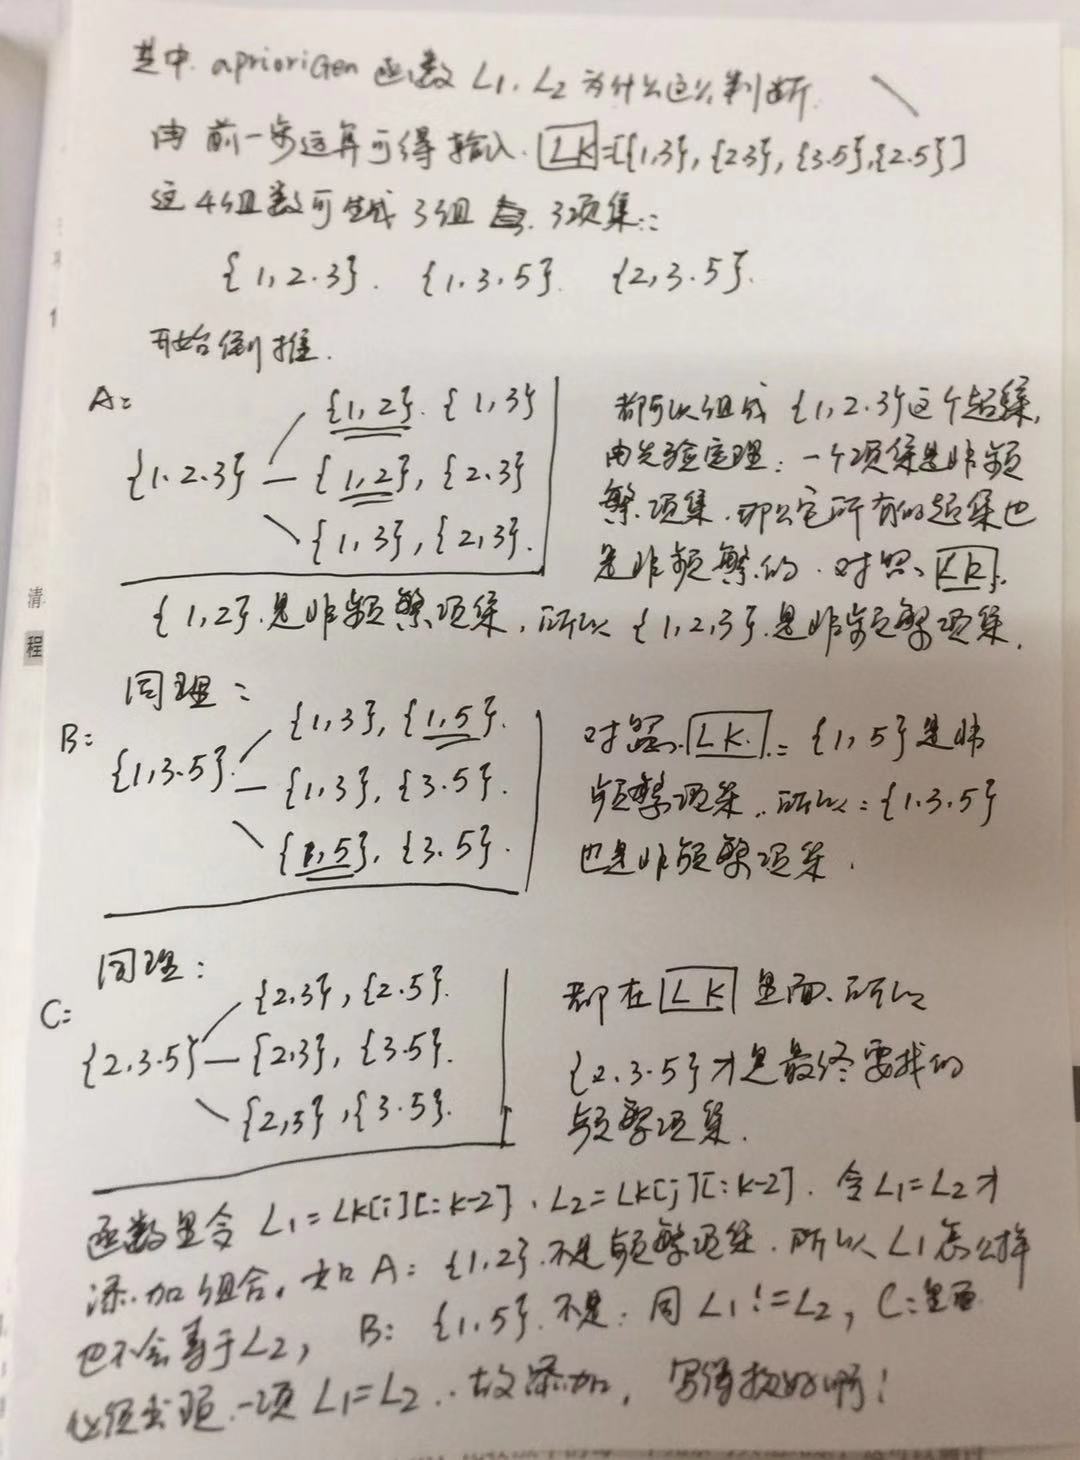 其中. aprioriGen 函数 L1. L2 为什么这么判断.
由 前一步运算可得 输入. LK=[{1,3}, {2,3}, {3.5}, {2.5}]
这4组数可生成3组 3项集::
{1,2.3}. {1.3.5}. {2,3.5}.
开始倒推.
A:
{1.2.3}
{1,2}. {1,3}
{1,2}, {2,3}
{1,3}, {2,3}.
都可以组成 {1,2.3}这个超集,
由先验定理: 一个项集是非频
繁.项集.那么它所有的超集也
是非频繁的.对照、LK.
{1,2}.是非频繁项集,所以 {1,2,3}.是非频繁项集.
同理:
B:
{1,3.5}.
{1,3}, {1,5}.
{1,3}, {3.5}.
{1,5}, {3.5}.
对照.LK.: {1,5}是非
频繁项集..所以:{1.3.5}
也是非频繁项集.
同理:
C:
{2,3.5}
{2.3}, {2.5}.
{2,3}, {3.5}.
{2,5}, {3.5}.
都在LK里面.所以
{2.3.5}才是最终要找的
频繁项集.
函数里令 L1=LK[i][:K-2]. L2=LK[j][:K-2]. 令L1=L2才
添加组合。如 A: {1,2}.不是频繁项集.所以 L1怎么样
也不会等于L2, B: {1,5}.不是:同L1!=L2, C:里面
仅仅出现一项 L1=L2..故添加, 写得挺好啊!
清
程